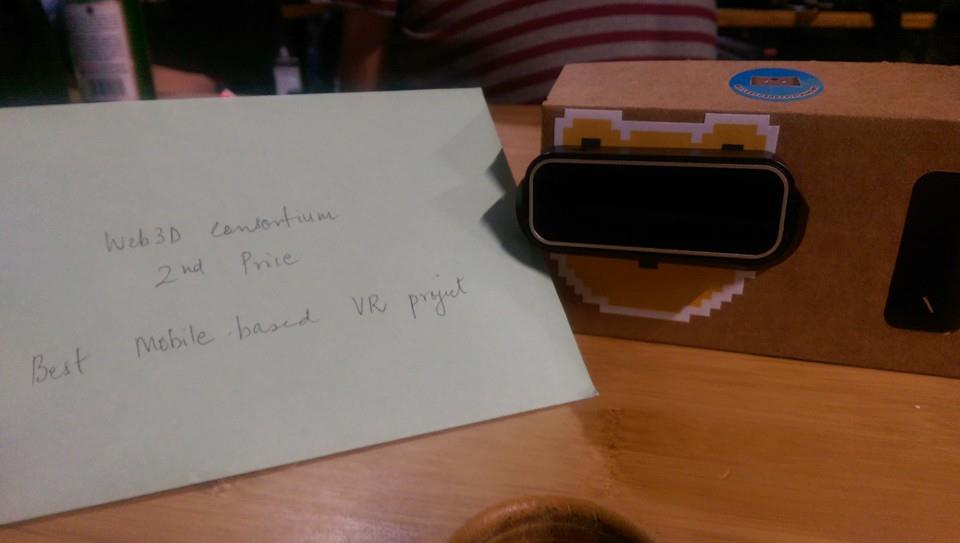 Web3D consortium
2nd Price
Best Mobile-based VR project